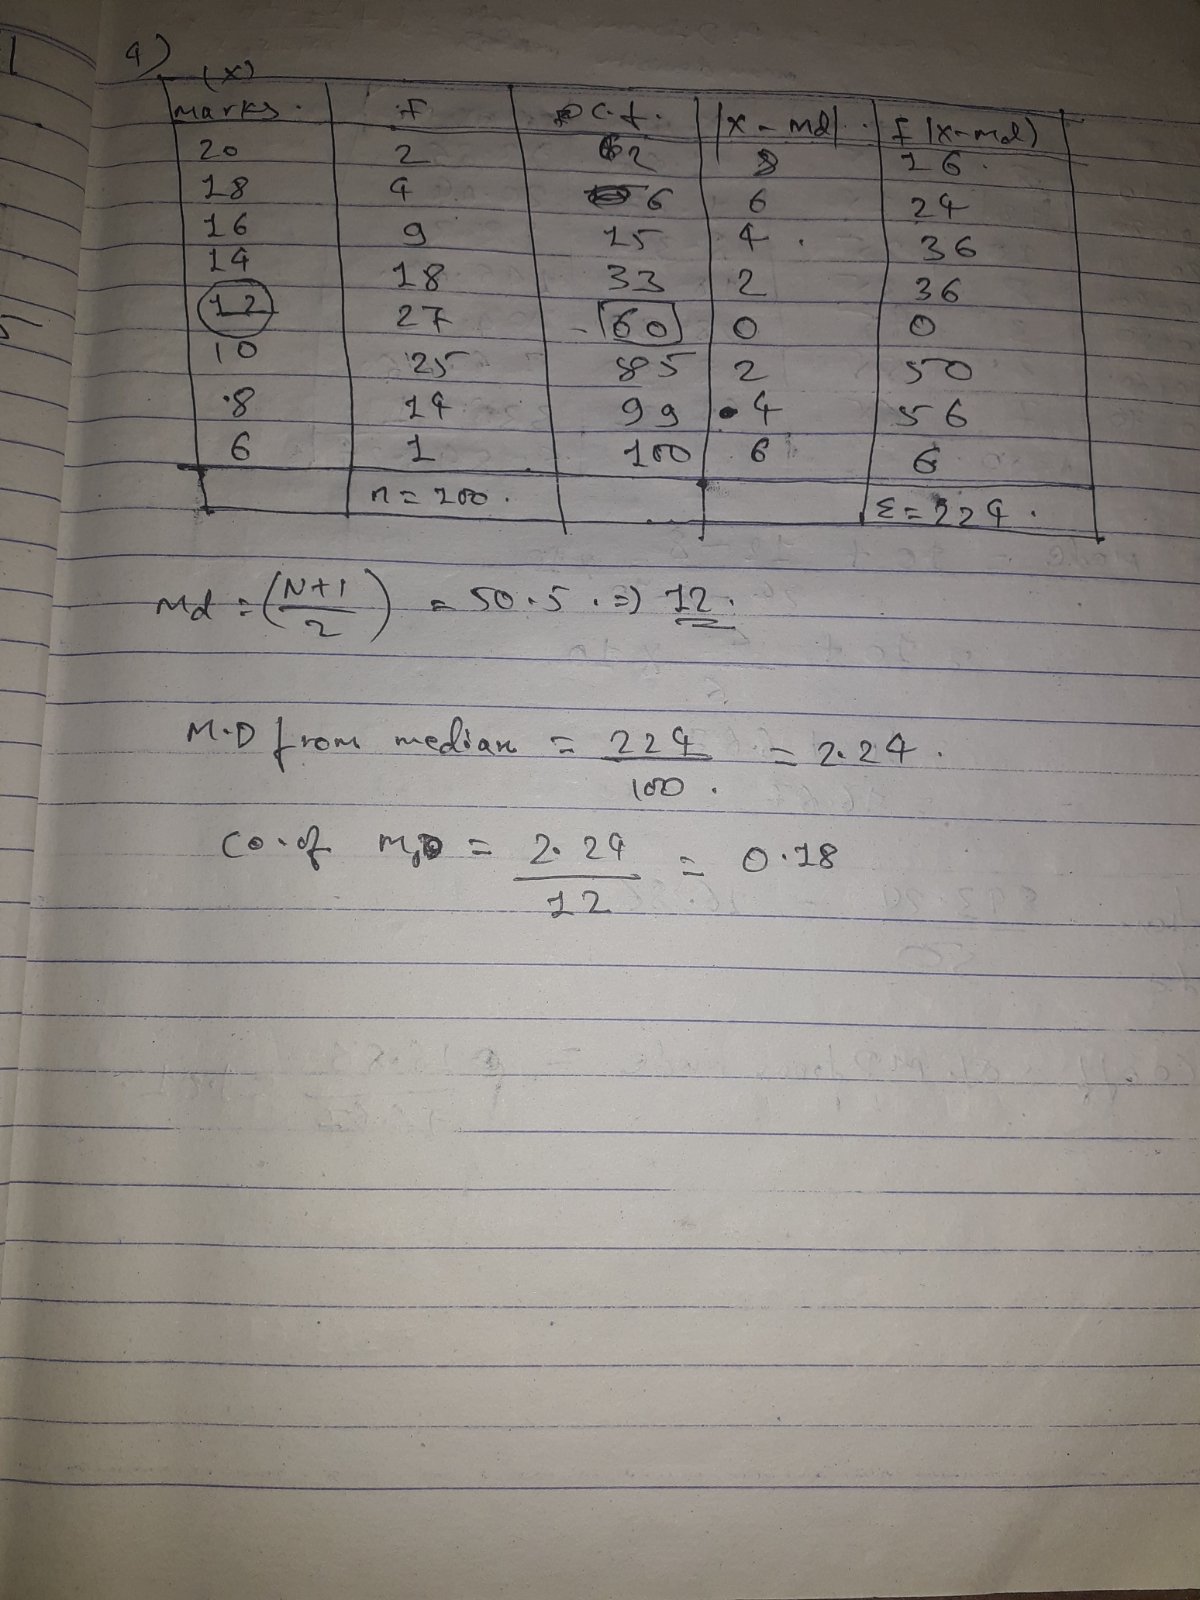 4)
(x)
marks. F c.f. |x - md|. F |x-md)
20 2 2 8 16.
18 4 6 6 24
16 9 15 4. 36
14 18 33 2 36
12 27 60 0 0
10 25 85 2 50
8 14 99 4 56
6 1 100 6 6
n = 100. Σ = 224.
Md = (N+1/2) = 50.5. => 12.
M.D from median = 224/100. = 2.24.
co.of M.D = 2.24/12 = 0.18